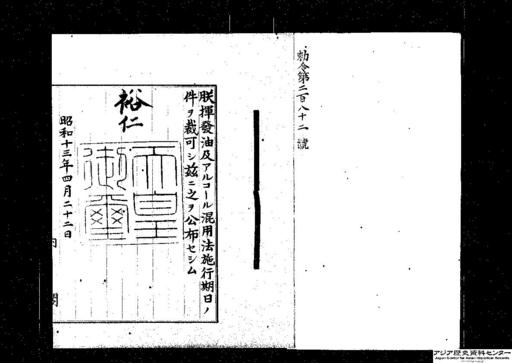 勅令第二百八十二號
朕揮發油及アルコール混用法施行期日ノ
件ヲ裁可シ茲ニ之ヲ公布セシム
裕仁
天皇
御璽
昭和十三年四月二十二日
内
閣
アジア歴史資料センター
Japan Center for Asian Historical Records